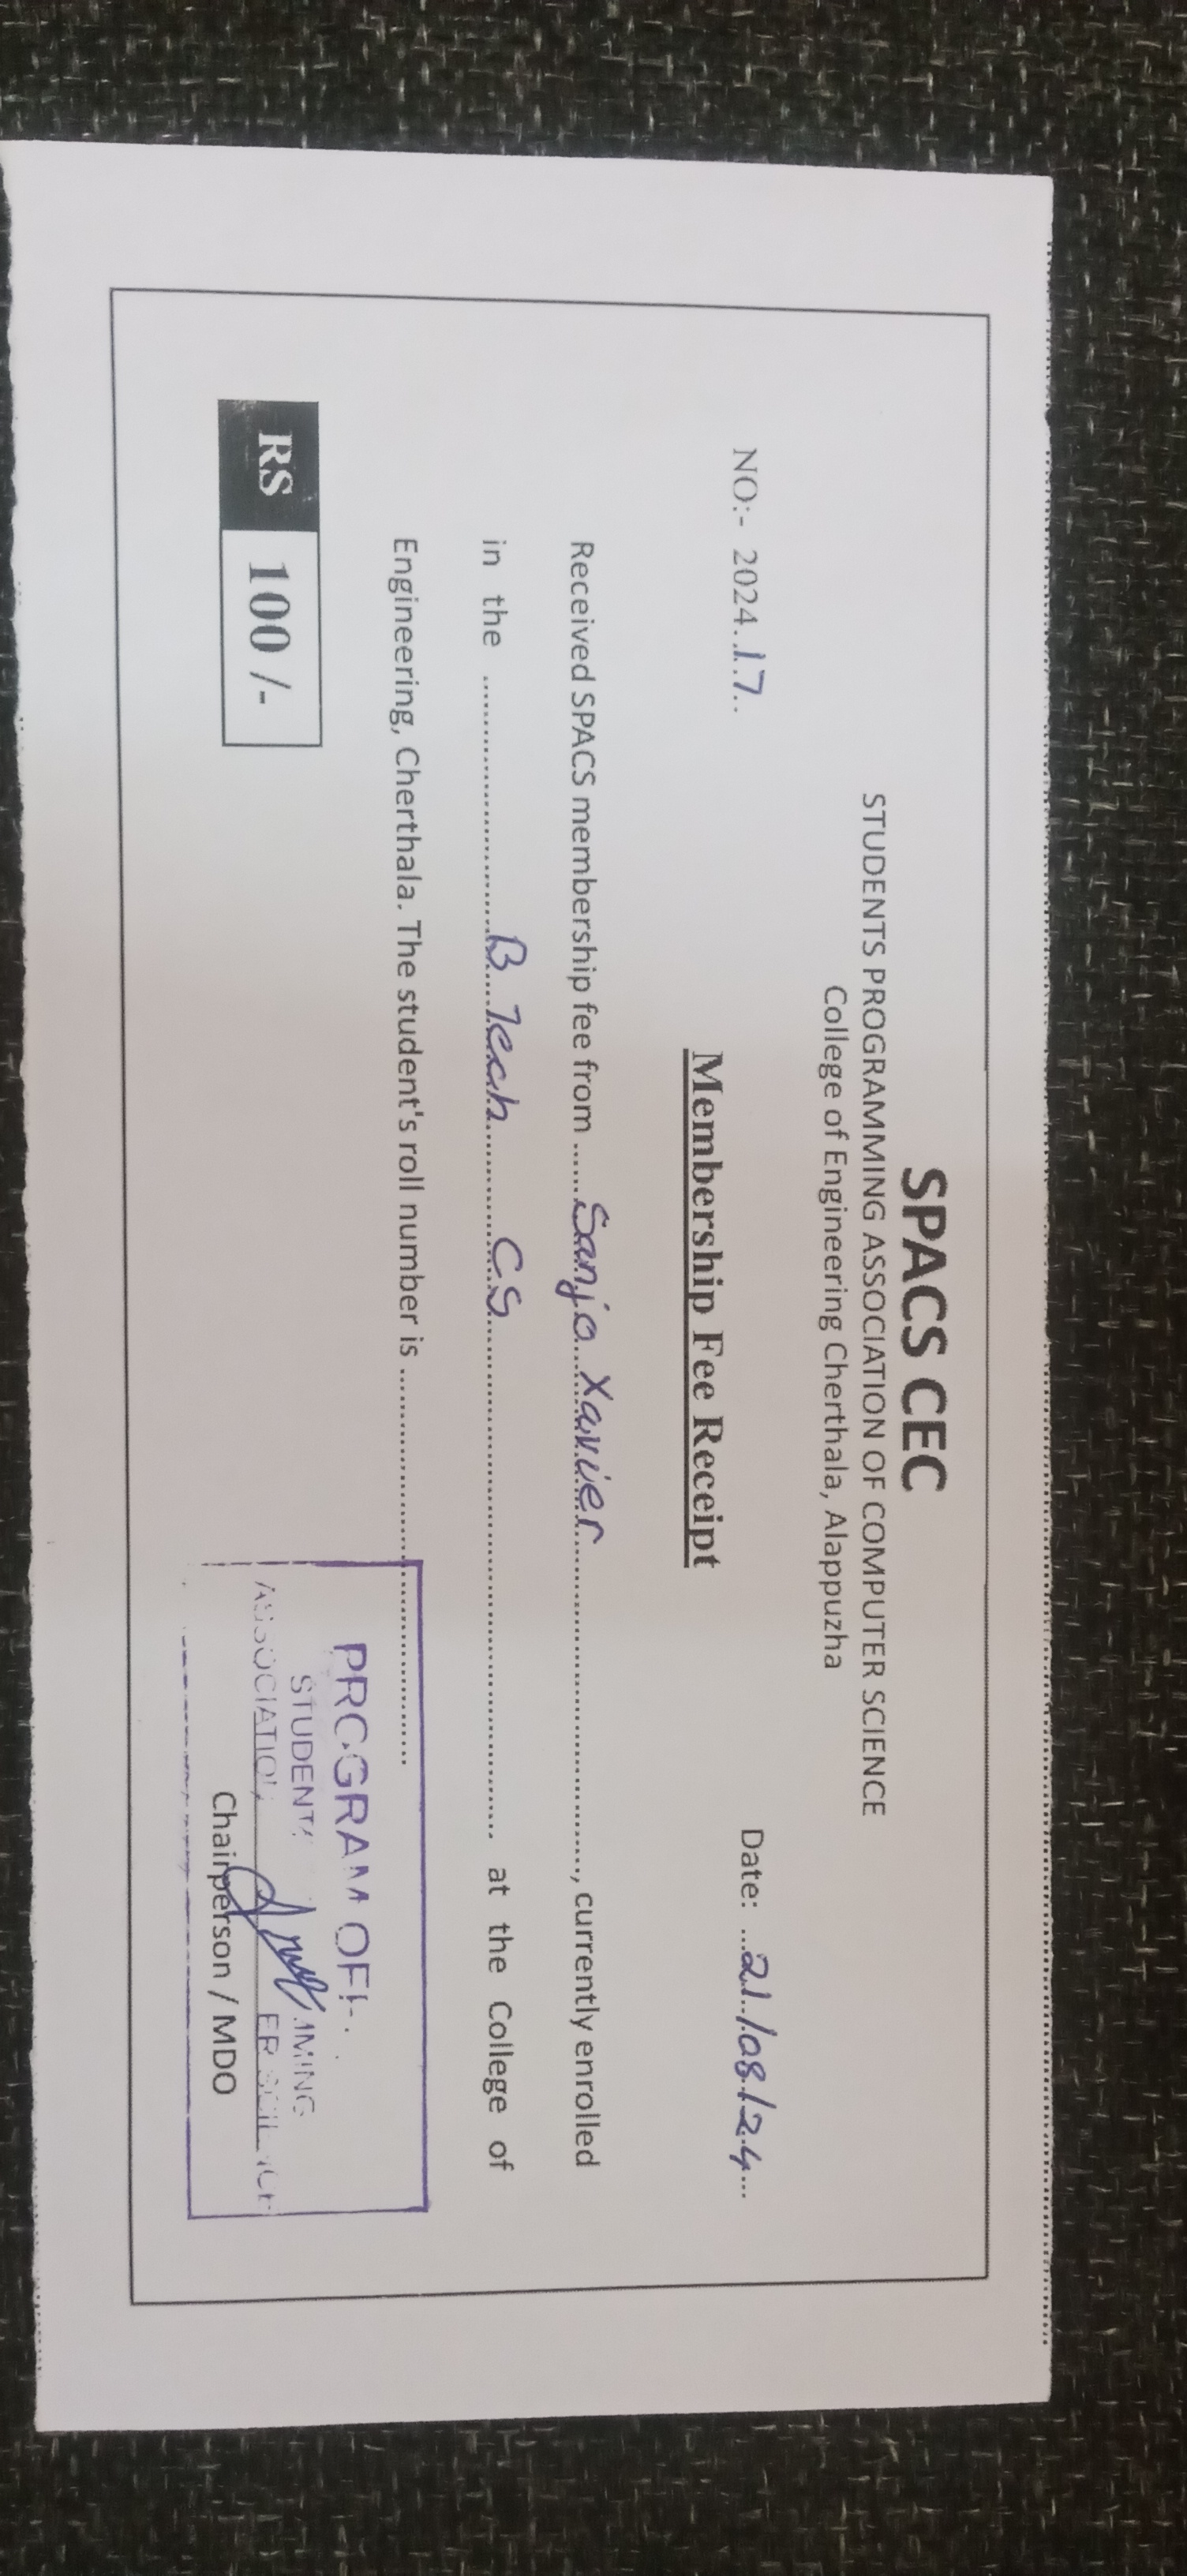 SPACS CEC
STUDENTS PROGRAMMING ASSOCIATION OF COMPUTER SCIENCE
College of Engineering Cherthala, Alappuzha
NO:- 2024..17..
Date: ...21/08/24...
Membership Fee Receipt
Received SPACS membership fee from ......Sanjo Xavier......, currently enrolled
in the ......B Tech CS...... at the College of
Engineering, Cherthala. The student's roll number is ......
PROGRAM
STUDENTS
ASSOCIATION ER SCIENCE
RS 100 /-
Chairperson / MDO